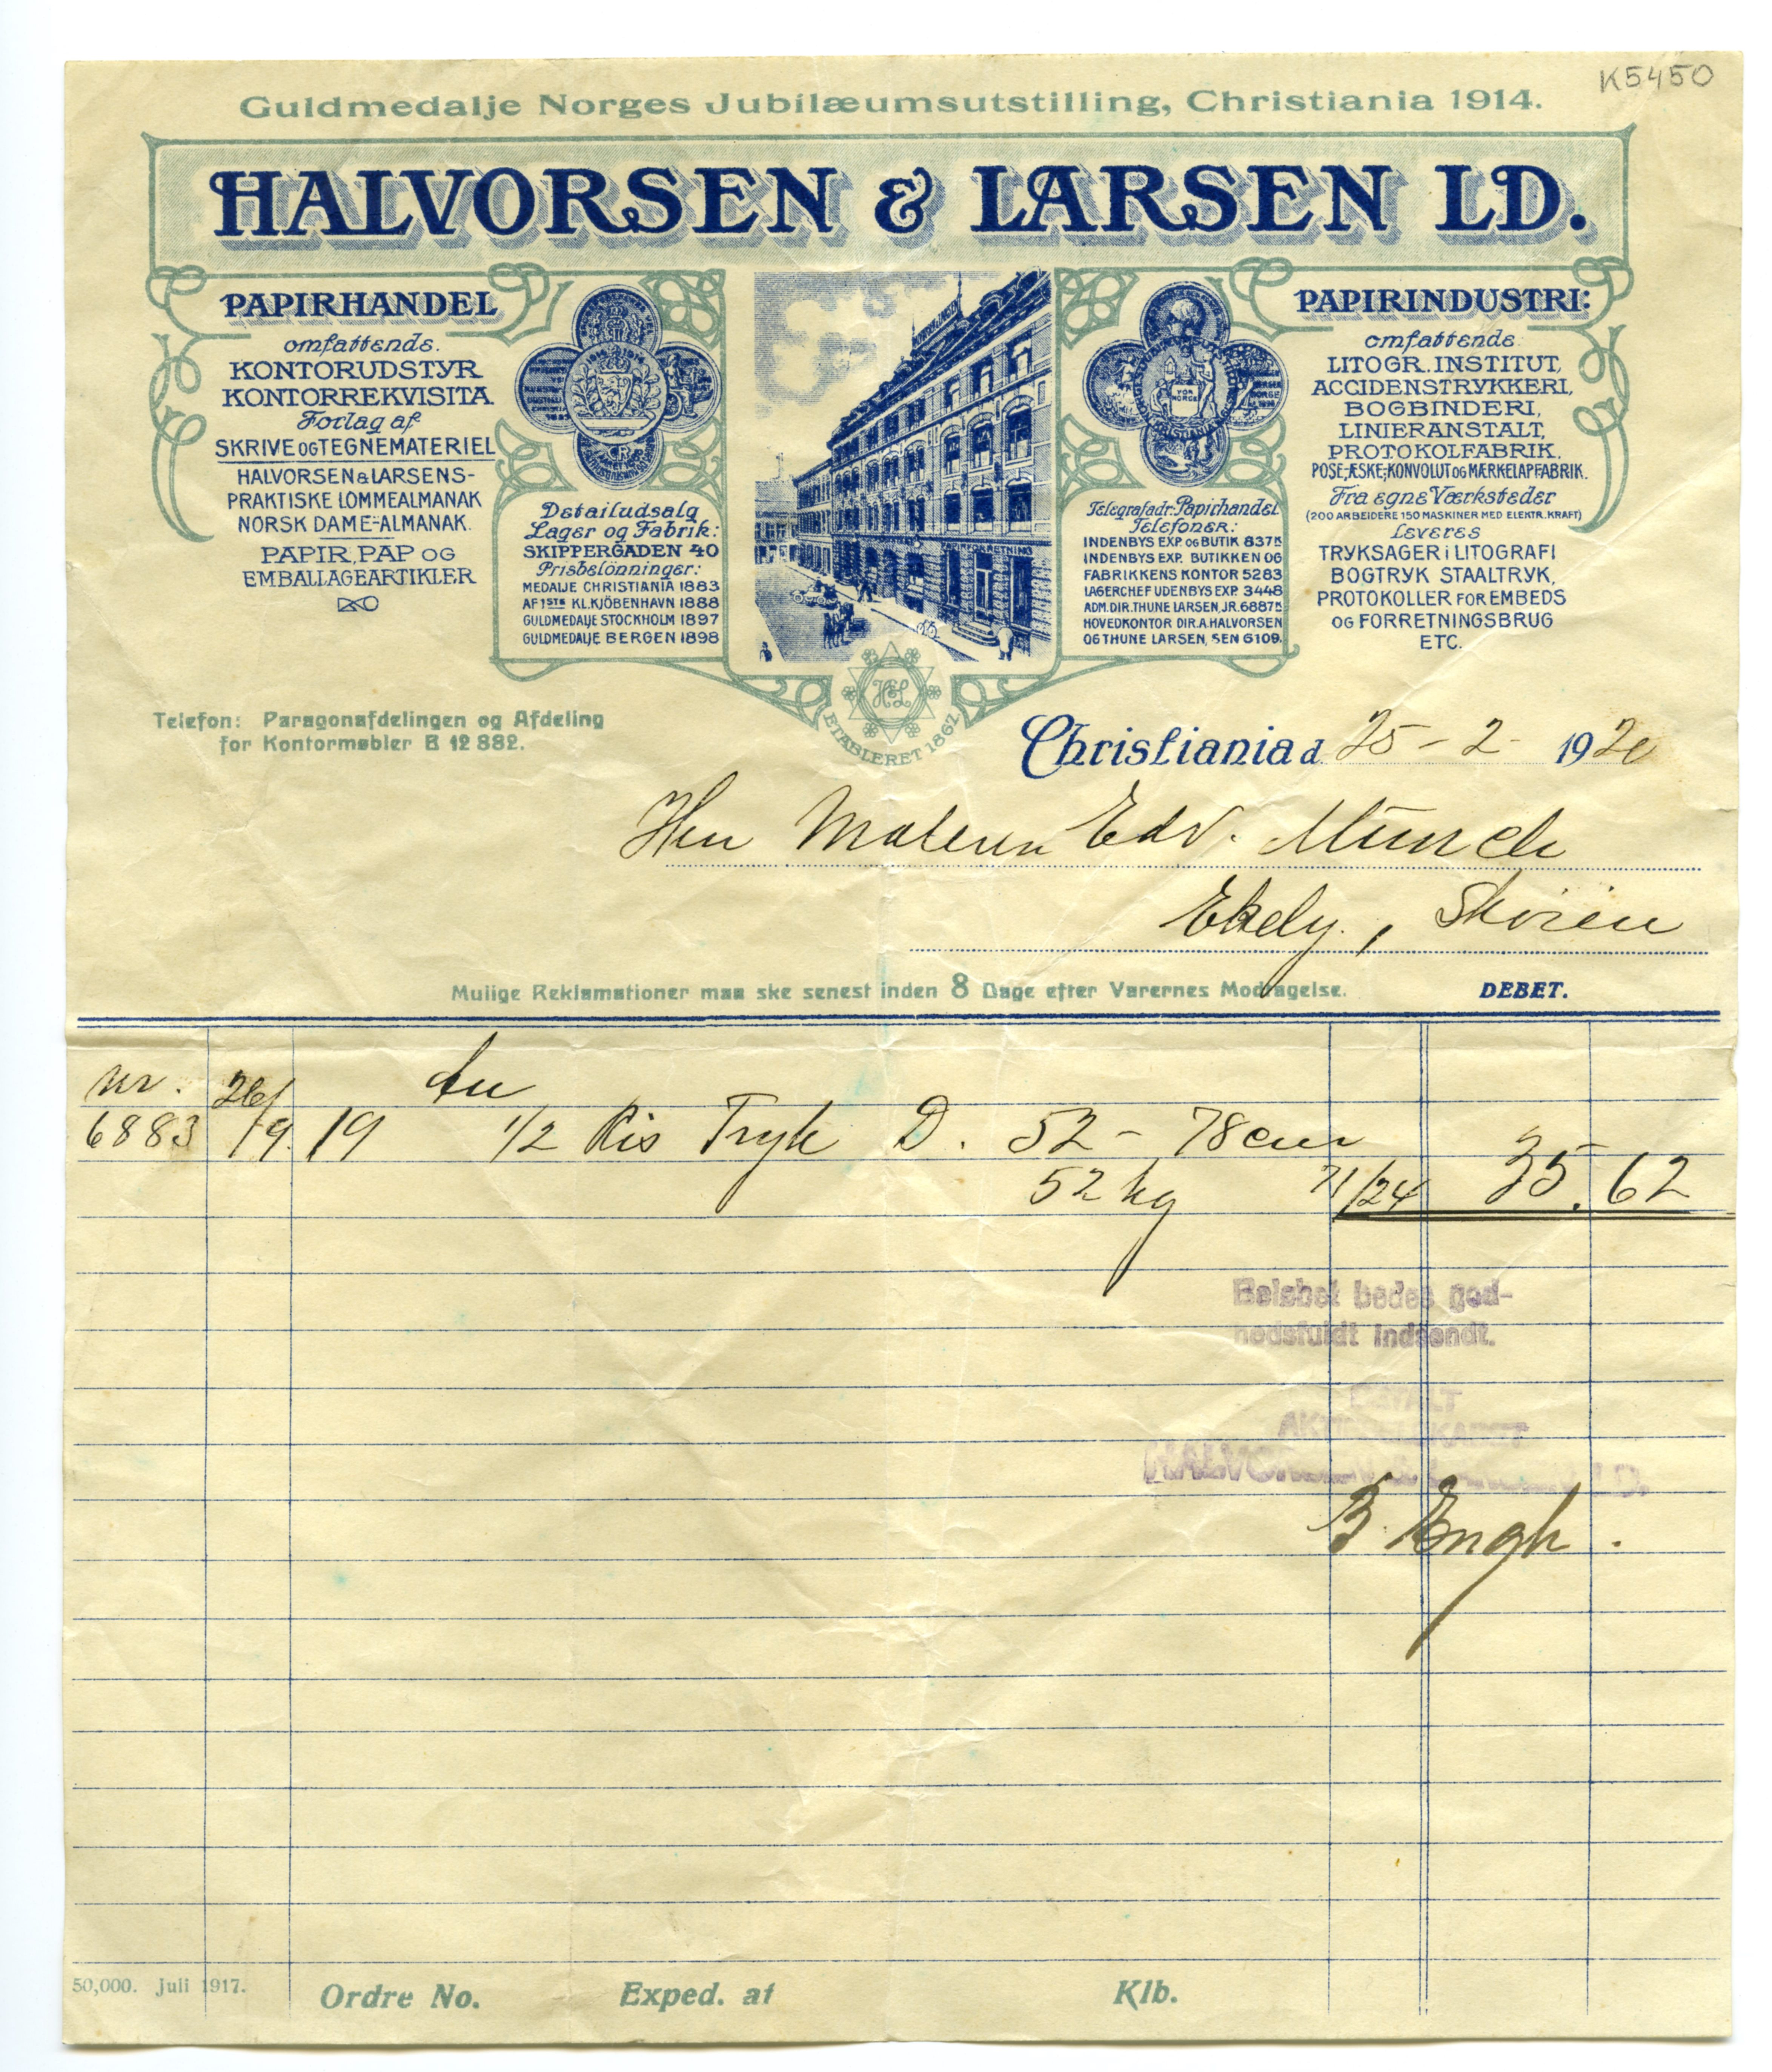 K5450
Guldmedalje Norges Jubilæumsutstilling, Christiania 1914.
HALVORSEN & LARSEN LD.
PAPIRHANDEL
omfattende.
KONTORUDSTYR
KONTORREKVISITA
Forlag af
SKRIVE OG TEGNEMATERIEL
HALVORSEN & LARSENS-
PRAKTISKE LOMMEALMANAK
NORSK DAME-ALMANAK.
PAPIR, PAP OG
EMBALLAGEARTIKLER
Detailudsalg
Lager og Fabrik:
SKIPPERGADEN 40
Prisbelönninger:
MEDALJE CHRISTIANIA 1883
AF 1STE KL. KJÖBENHAVN 1888
GULDMEDALJE STOCKHOLM 1897
GULDMEDALJE BERGEN 1898
H&L
ETABLERET 1862
Telegrafadr: Papirhandel
Telefoner:
INDENBYS EXP. OG BUTIK 8375
INDENBYS EXP. BUTIKKEN OG
FABRIKKENS KONTOR 5283
LAGERCHEF UDENBYS EXP. 3448
ADM. DIR. THUNE LARSEN, JR. 6887B
HOVEDKONTOR DIR. A. HALVORSEN
OG THUNE LARSEN, SEN 6109.
PAPIRINDUSTRI:
omfattende
LITOGR. INSTITUT,
ACCIDENSTRYKKERI,
BOGBINDERI,
LINIERANSTALT,
PROTOKOLFABRIK.
POSE-, ÆSKE-, KONVOLUT OG MÆRKELAPFABRIK.
Fra egne Værksteder
(200 ARBEIDERE 150 MASKINER MED ELEKTR. KRAFT)
Leveres
TRYKSAGER i LITOGRAFI
BOGTRYK STAALTRYK,
PROTOKOLLER FOR EMBEDS
OG FORRETNINGSBRUG
ETC.
Telefon: Paragonafdelingen og Afdeling
for Kontormøbler B 12882.
Christiania d. 25-2- 1920
Herr Maleren Edv. Munch
Ekely, Skøien
Mulige Reklamationer maa ske senest inden 8 Dage efter Varernes Modtagelse.
DEBET.
nr. 26/ An
6883 /9. 19 1/2 Ris Tryk D. 52 - 78 cm
52 kg 71/24 35.62
Beløbet bedes god-
hedsfuldt indsendt.
BETALT
AKTIESELSKABET
HALVORSEN & LARSEN LD.
B. Engh.
50,000. Juli 1917.
Ordre No.
Exped. af
Klb.